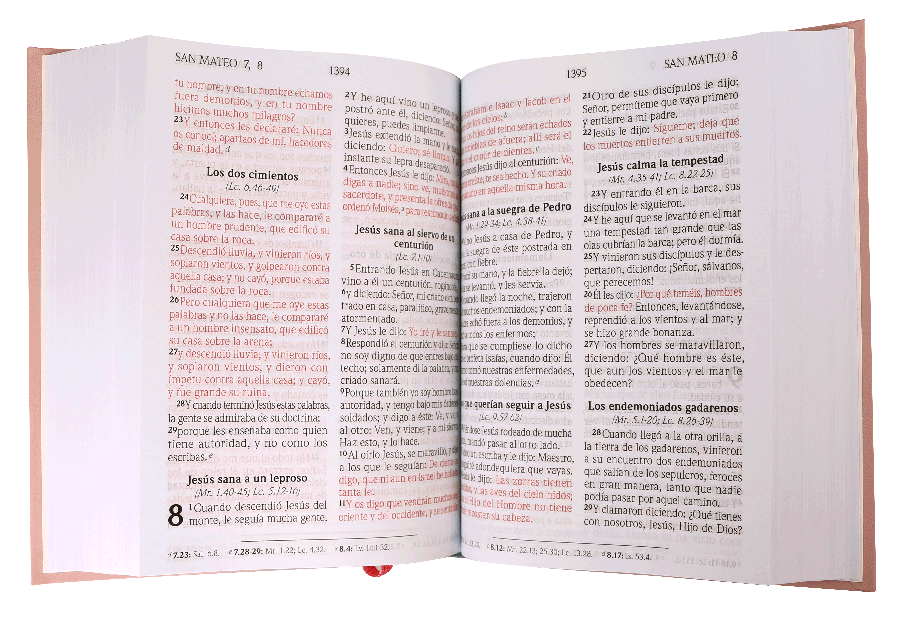 SAN MATEO 7, 8
1394
tu nombre, y en tu nombre echamos
fuera demonios, y en tu nombre
hicimos muchos milagros?
23Y entonces les declararé: Nunca
os conocí; apartaos de mí, hacedores
de maldad. d
Los dos cimientos
(Lc. 6.46-49)
24Cualquiera, pues, que me oye estas
palabras, y las hace, le compararé a
un hombre prudente, que edificó su
casa sobre la roca.
25Descendió lluvia, y vinieron ríos, y
soplaron vientos, y golpearon contra
aquella casa; y no cayó, porque estaba
fundada sobre la roca.
26Pero cualquiera que me oye estas
palabras y no las hace, le compararé
a un hombre insensato, que edificó
su casa sobre la arena;
27y descendió lluvia, y vinieron ríos,
y soplaron vientos, y dieron con
ímpetu contra aquella casa; y cayó,
y fue grande su ruina.
28Y cuando terminó Jesús estas palabras,
la gente se admiraba de su doctrina;
29porque les enseñaba como quien
tiene autoridad, y no como los
escribas. e
Jesús sana a un leproso
(Mr. 1.40-45; Lc. 5.12-16)
8 1Cuando descendió Jesús del
monte, le seguía mucha gente.
2Y he aquí vino un leproso
postró ante él, diciendo: Señor,
quieres, puedes limpiarme.
3Jesús extendió la mano y le
diciendo: Quiero; sé limpio
instante su lepra desapareció.
4Entonces Jesús le dijo: Mira,
digas a nadie; sino ve, muéstrate
sacerdote, y presenta la ofrenda
ordenó Moisés, a para testimonio
Jesús sana al siervo de un
centurión
(Lc. 7.1-10)
5Entrando Jesús en Capernaum,
vino a él un centurión, rogándole,
6y diciendo: Señor, mi criado está
trado en casa, paralítico, gravemente
atormentado.
7Y Jesús le dijo: Yo iré y le sanaré.
8Respondió el centurión y dijo: Señor,
no soy digno de que entres bajo
techo; solamente di la palabra, y mi
criado sanará.
9Porque también yo soy hombre
autoridad, y tengo bajo mis
soldados; y digo a éste: Ve, y va;
al otro: Ven, y viene; y a mi siervo:
Haz esto, y lo hace.
10Al oírlo Jesús, se maravilló, y dijo
a los que le seguían: De cierto
digo, que ni aun en Israel he hallado
tanta fe.
11Y os digo que vendrán muchos
oriente y del occidente, y se sentarán
d 7.23: Sal. 6.8. e 7.28-29: Mr. 1.22; Lc. 4.32. a 8.4: Lv. 14.1-32.
1395
SAN MATEO 8
Abraham e Isaac y Jacob en el
de los cielos; b
hijos del reino serán echados
tinieblas de afuera; allí será el
el crujir de dientes. c
Entonces Jesús dijo al centurión: Ve,
creíste, te sea hecho. Y su criado
sanado en aquella misma hora.
Jesús sana a la suegra de Pedro
(Mr. 1.29-34; Lc. 4.38-41)
vino Jesús a casa de Pedro, y
la suegra de éste postrada en
con fiebre.
tocó su mano, y la fiebre la dejó;
se levantó, y les servía.
cuando llegó la noche, trajeron
muchos endemoniados; y con la
echó fuera a los demonios, y
a todos los enfermos;
para que se cumpliese lo dicho
profeta Isaías, cuando dijo: Él
tomó nuestras enfermedades,
nuestras dolencias. d
que querían seguir a Jesús
(Lc. 9.57-62)
Viéndose Jesús rodeado de mucha
mandó pasar al otro lado.
un escriba y le dijo: Maestro,
adondequiera que vayas.
Jesús le dijo: Las zorras tienen
y las aves del cielo nidos;
el Hijo del Hombre no tiene
recostar su cabeza.
21Otro de sus discípulos le dijo:
Señor, permíteme que vaya primero
y entierre a mi padre.
22Jesús le dijo: Sígueme; deja que
los muertos entierren a sus muertos.
Jesús calma la tempestad
(Mr. 4.35-41; Lc. 8.22-25)
23Y entrando él en la barca, sus
discípulos le siguieron.
24Y he aquí que se levantó en el mar
una tempestad tan grande que las
olas cubrían la barca; pero él dormía.
25Y vinieron sus discípulos y le des-
pertaron, diciendo: ¡Señor, sálvanos,
que perecemos!
26Él les dijo: ¿Por qué teméis, hombres
de poca fe? Entonces, levantándose,
reprendió a los vientos y al mar; y
se hizo grande bonanza.
27Y los hombres se maravillaron,
diciendo: ¿Qué hombre es éste,
que aun los vientos y el mar le
obedecen?
Los endemoniados gadarenos
(Mr. 5.1-20; Lc. 8.26-39)
28Cuando llegó a la otra orilla, a
la tierra de los gadarenos, vinieron
a su encuentro dos endemoniados
que salían de los sepulcros, feroces
en gran manera, tanto que nadie
podía pasar por aquel camino.
29Y clamaron diciendo: ¿Qué tienes
con nosotros, Jesús, Hijo de Dios?
c 8.12: Mt. 22.13; 25.30; Lc. 13.28. d 8.17: Is. 53.4.